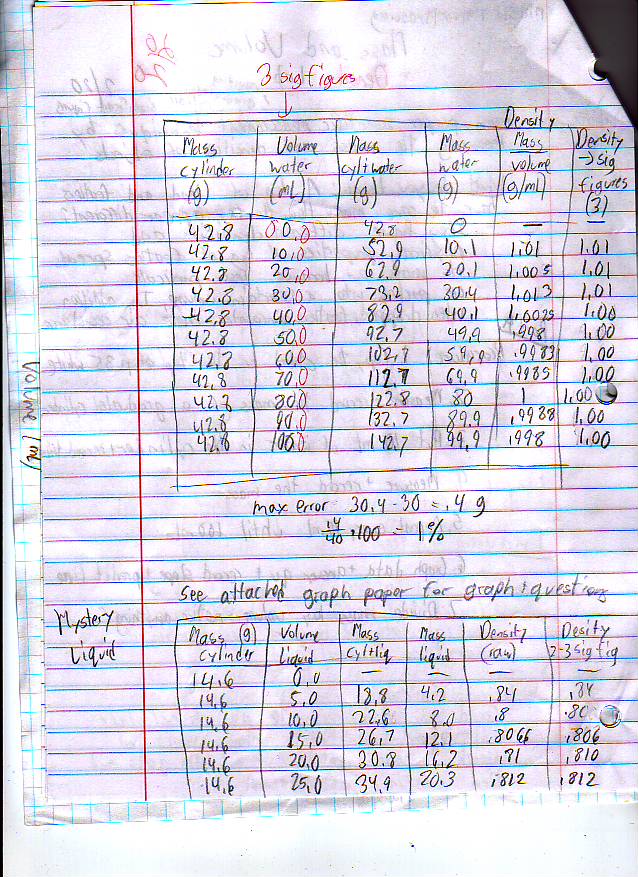 3 sig figures
Density
Mass Volume Mass Mass Mass Density
cylinder water cyl+water water volume → sig
(g) (mL) (g) (g) (g/mL) figures
(3)
42.8 00.0 42.8 0 — —
42.8 10.0 52.9 10.1 1.01 1.01
42.8 20.0 62.9 20.1 1.005 1.01
42.8 30.0 73.2 30.4 1.013 1.01
42.8 40.0 82.9 40.1 1.0025 1.00
42.8 50.0 92.7 49.9 .998 1.00
42.8 60.0 102.7 59.9 .9983 1.00
42.8 70.0 112.7 69.9 .9985 1.00
42.8 80.0 122.8 80 1 1.00
42.8 90.0 132.7 89.9 .9988 1.00
42.8 100.0 142.7 99.9 .998 1.00
Volume (mL)
max error 30.4 - 30 = .4 g
.100 = 1%
See attached graph paper for graph + questions
Mystery
Liquid
Mass (g) Volume Mass Mass Density Desity
cylinder Liquid cyl+liq liquid (raw) 2-3 sig fig
14.6 0.0 — — — —
14.6 5.0 18.8 4.2 .84 .84
14.6 10.0 22.6 8.0 .8 .80
14.6 15.0 26.7 12.1 .8066 .806
14.6 20.0 30.8 16.2 .81 .810
14.6 25.0 34.9 20.3 .812 .812